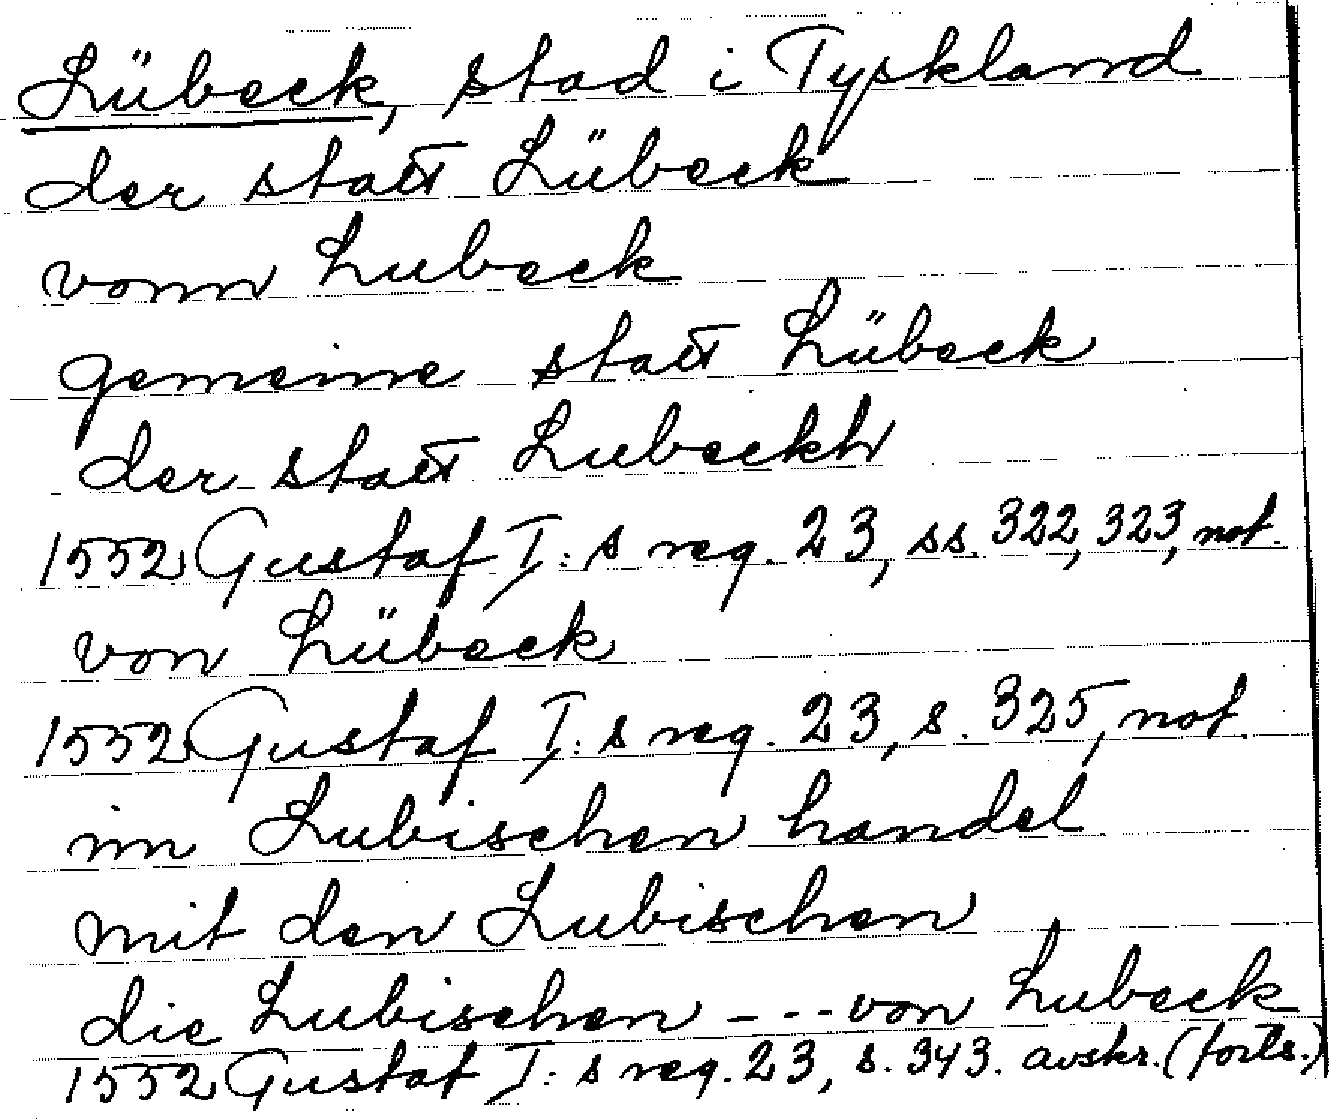 Lübeck, stad i Tyskland
der statt Lübeck
vonn Lubeck
gemeine statt Lübeck
der statt Lubeckh
1552 Gustaf I:s reg. 23, ss. 322, 323, not.
von Lübeck
1552 Gustaf I:s reg. 23, s. 325, not.
im Lubischen handel
mit den Lubischen
die Lubischen --- von Lubeck
1552 Gustaf I:s reg. 23, s. 343. avskr. (forts.)